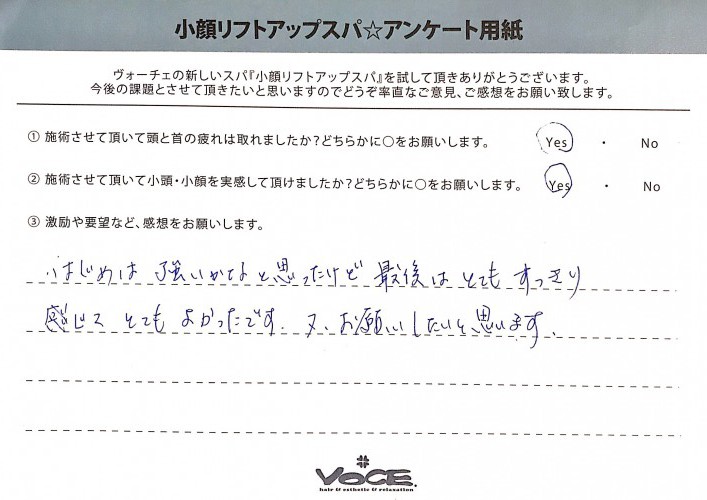 小顔リフトアップスパ☆アンケート用紙
ヴォーチェの新しいスパ『小顔リフトアップスパ』を試して頂きありがとうございます。
今後の課題とさせて頂きたいと思いますのでどうぞ率直なご意見、ご感想をお願い致します。
① 施術させて頂いて頭と首の疲れは取れましたか？どちらかに〇をお願いします。 Yes ・ No
② 施術させて頂いて小頭・小顔を実感して頂けましたか？どちらかに〇をお願いします。 Yes ・ No
③ 激励や要望など、感想をお願いします。
はじめは 強いかなと思ったけど 最後は とても すっきり
感じて とても よかったです. 又、お願いしたいと思います.
VOCE.
hair & esthetic & relaxation